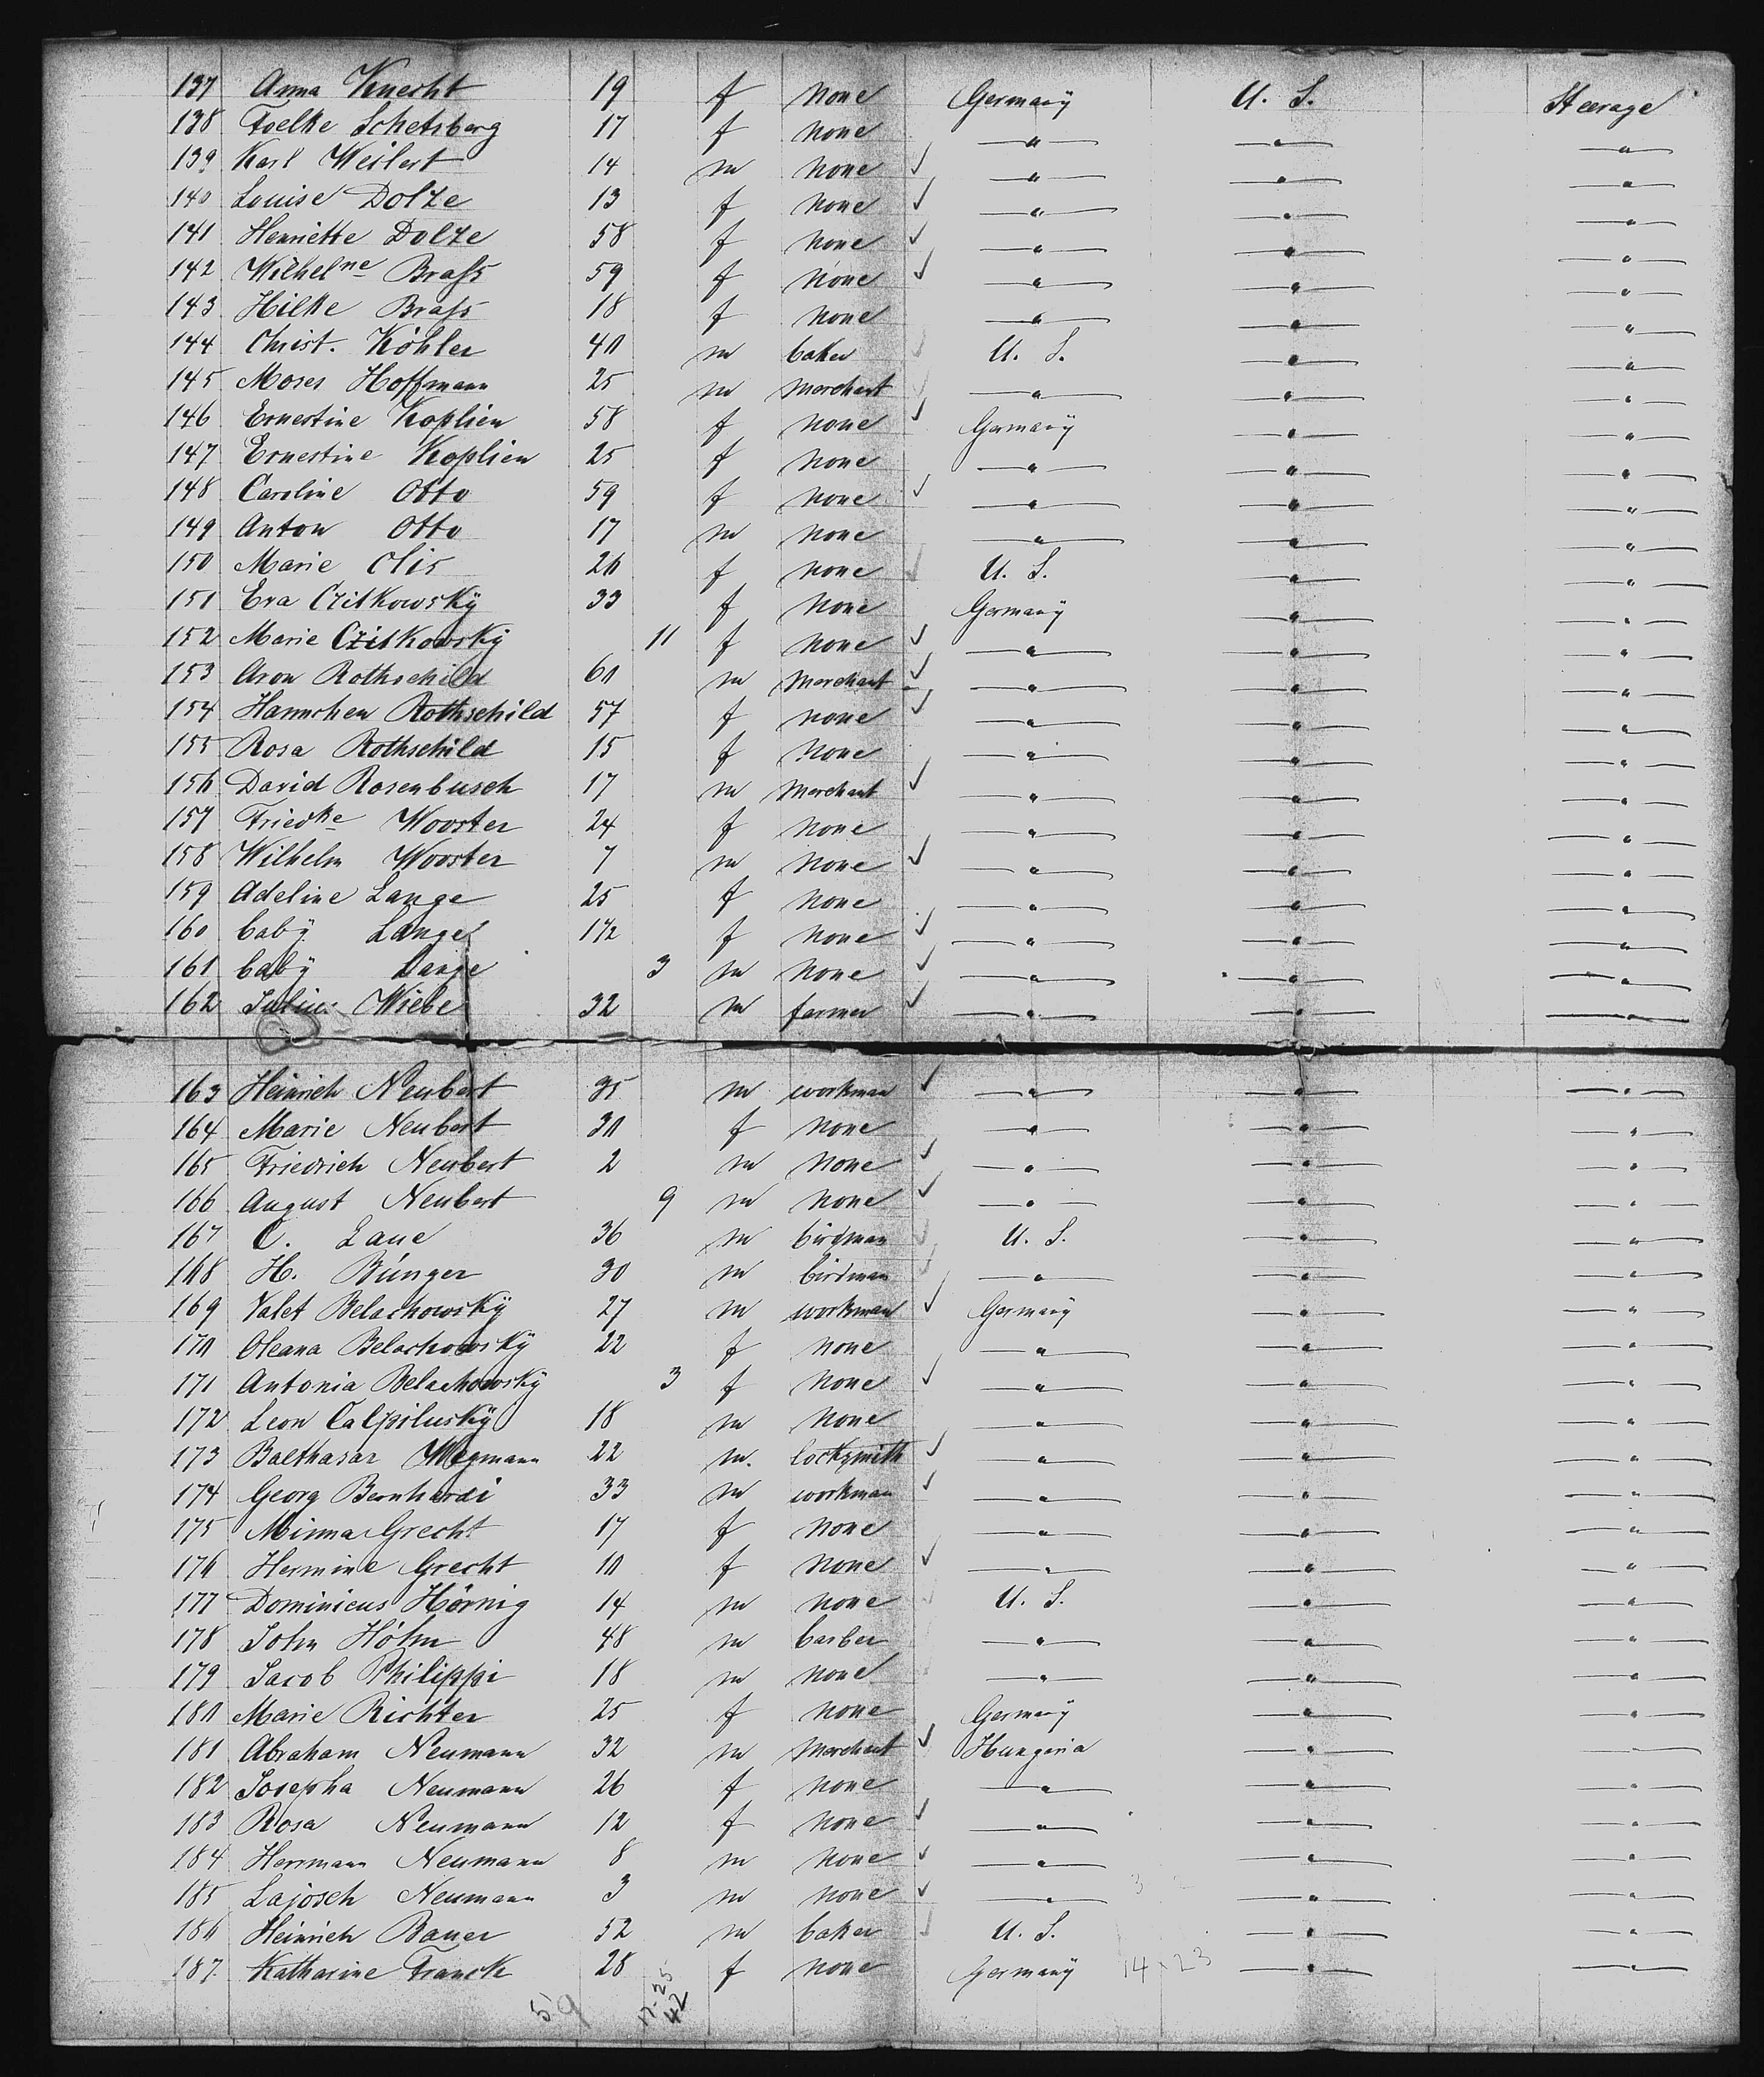 137 Anna Knecht 19 f none Germany U. S. Steerage
138 Foelke Schetsberg 17 f none " " "
139 Karl Weilert 14 m none ✓ " " "
140 Louise Dolze 13 f none ✓ " " "
141 Henriette Dolze 58 f none ✓ " " "
142 Wilhelne Brass 59 f none ✓ " " "
143 Hilke Brass 18 f none " " "
144 Christ. Köhler 40 m baker ✓ U. S. " "
145 Moses Hoffmann 25 m merchant ✓ " " "
146 Ernestine Koplien 58 f none ✓ Germany " "
147 Ernestine Koplien 25 f none " " "
148 Caroline Otto 59 f none ✓ " " "
149 Anton Otto 17 m none " " "
150 Marie Olis 26 f none ✓ U. S. " "
151 Eva Czitkowsky 33 f none Germany " "
152 Marie Czitkowsky 11 f none ✓ " " "
153 Aron Rothschild 60 m merchant ✓ " " "
154 Hannchen Rothschild 57 f none ✓ " " "
155 Rosa Rothschild 15 f none " " "
156 David Rosenbusch 17 m merchant ✓ " " "
157 Friedke Wooster 24 f none " " "
158 Wilhelm Wooster 7 m none ✓ " " "
159 Adeline Lange 25 f none " " "
160 baby Lange 1 1/2 f none ✓ " " "
161 baby Lange 3 m none ✓ " " "
162 Julius Wiebe 32 m farmer ✓ " " "
163 Heinrich Neubert 35 m workman ✓ " " "
164 Marie Neubert 30 f none " " "
165 Friedrich Neubert 2 m none ✓ " " "
166 August Neubert 9 m none ✓ " " "
167 C. Laue 36 m birdman ✓ U. S. " "
168 H. Bünger 30 m birdman ✓ " " "
169 Valet Belachowsky 27 m workman ✓ Germany " "
170 Oleana Belachowsky 22 f none " " "
171 Antonia Belachowsky 3 f none ✓ " " "
172 Leon Calpilusky 18 m none " " "
173 Balthasar Wegmann 22 m. locksmith ✓ " " "
174 Georg Bernhardi 33 m workman ✓ " " "
175 Minna Grecht 17 f none " " "
176 Hermine Grecht 10 f none ✓ " " "
177 Dominicus Hörnig 14 m none U. S. " "
178 John Höhn 48 m barber " " "
179 Jacob Philippi 18 m none " " "
180 Marie Richter 25 f none Germany " "
181 Abraham Neumann 32 m merchant ✓ Hungaria " "
182 Josepha Neumann 26 f none " " "
183 Rosa Neumann 12 f none ✓ " " "
184 Herrmann Neumann 8 m none ✓ " " "
185 Lajosch Neumann 3 m none ✓ " " "
186 Heinrich Bauer 52 m baker ✓ U. S. " "
187 Katharine Franck 28 f none Germany 14 23 " "
59 17-25
42